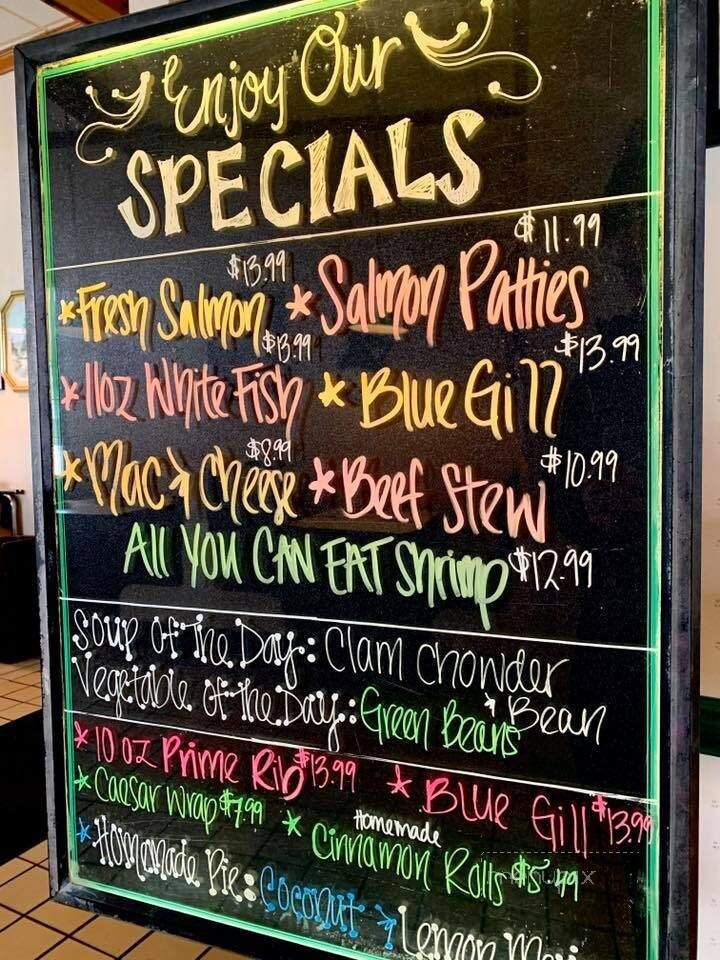 Enjoy Our
SPECIALS
$13.99 $11.99
*Fresh Salmon *Salmon Patties
$13.99 $13.99
*11oz White Fish *Blue Gill
$8.99 $10.99
*Mac & Cheese *Beef Stew
All YOU CAN EAT Shrimp $12.99
Soup of the Day: Clam Chowder
& Bean
Vegetable of the Day: Green Beans
*10 oz Prime Rib $13.99 *Blue Gill $13.99
*Caesar Wrap $7.99 *Homemade Cinnamon Rolls $5.49
*Homemade Pie: Coconut & Lemon